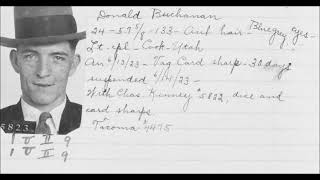 Donald Buchanan
24 - 5.7 5/8 - 133 - Aub hair - Bluegry eyes -
Lt. cpl - Cook - Utah
Arr 6/13/23 - Vag Card sharp - 30 days
suspended 6/14/23 -
With Chas. Kinney #5822, dice and
card sharps
Tacoma #4475
5823
1 U II 9
1 U II 9